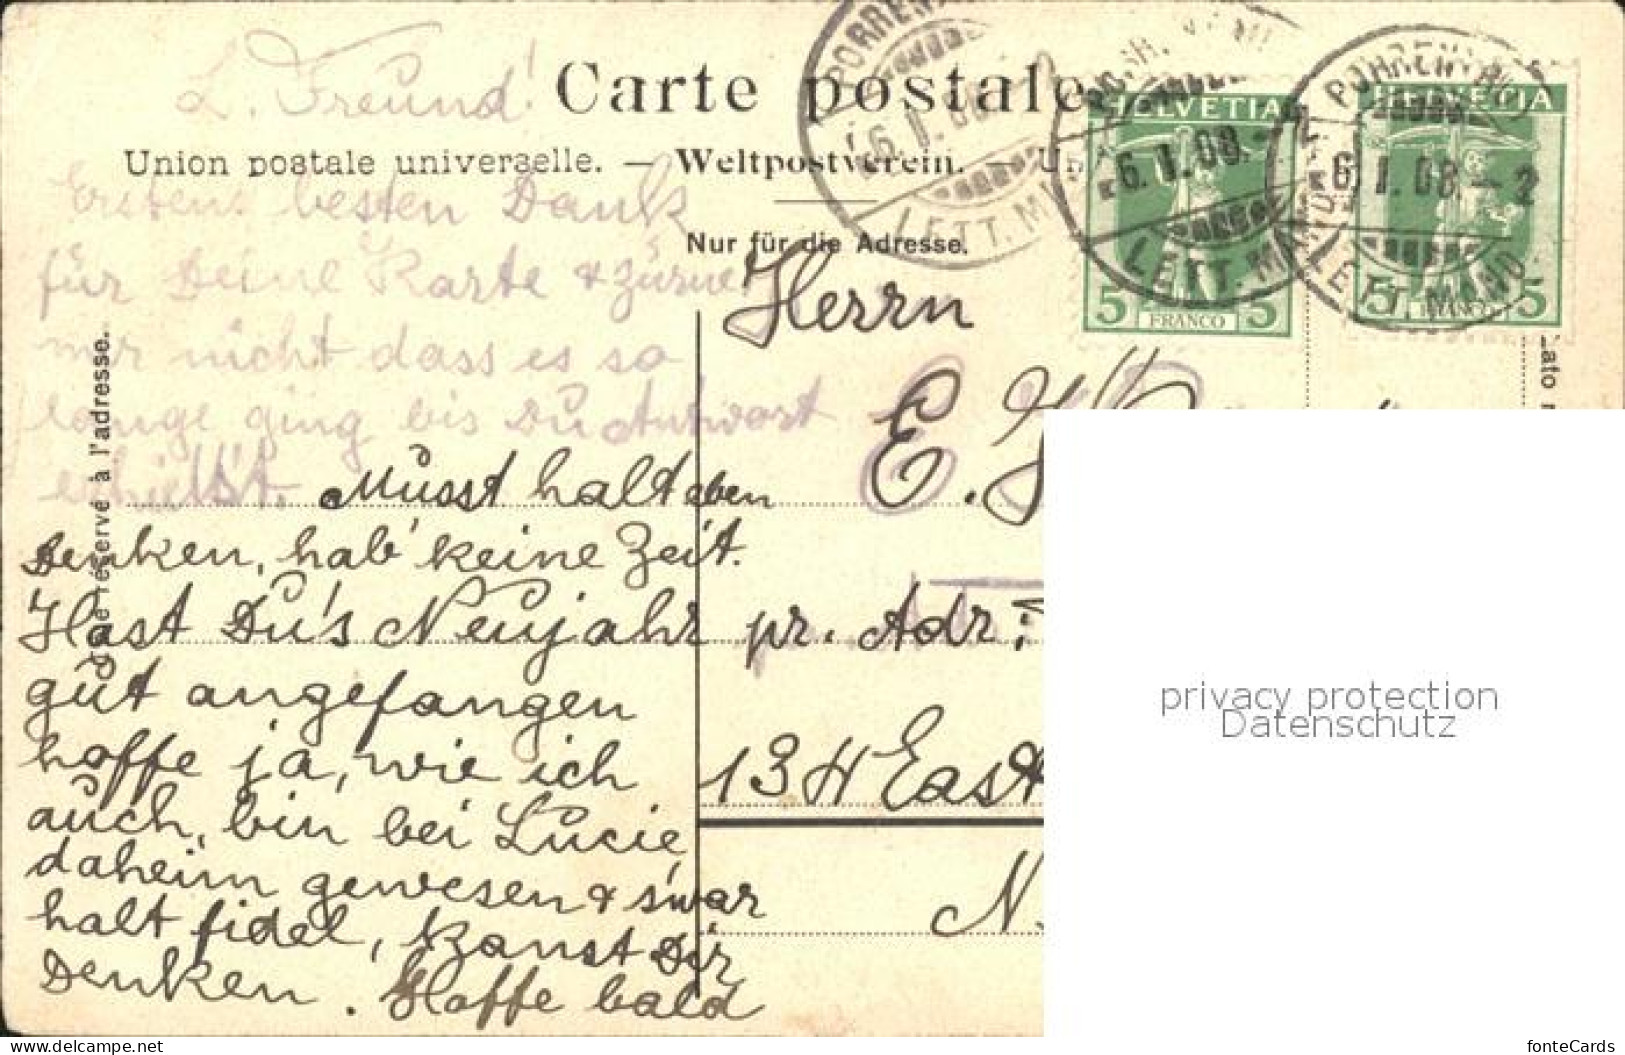 L. Freund!
Carte postale
Union postale universelle. — Weltpostverein. — Un
Nur für die Adresse.
Côté réservé à l'adresse.
Lato
PORRENTRUY
6. I. 08.
LETT. M
6. I. 08. - 2
LETT. MAND
PORRENTRUY
6. I. 08. - 2
LETT. MAND
HELVETIA
5 FRANCO 5
HELVETIA
5 FRANCO 5
Erstens besten Dank
für Deine Karte & zürne
mir nicht dass es so
lange ging bis Du Antwort
erhielst. Musst halt eben
denken, hab' keine Zeit.
Hast Du's Neujahr
gut angefangen
hoffe ja, wie ich
auch, bin bei Lucie
daheim gewesen & s'war
halt fidel, kanst Dir
Denken. Hoffe bald
Herrn
E.
pr. Adr:
134 East
N.
privacy protection
Datenschutz
the-best-of-postcards on Delcampe.net
fonteCards